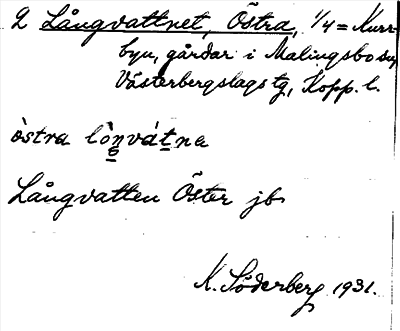 2 Långvattnet, Östra, 1/4 = Kurr-
byn, gårdar i Malingsbo sn,
Västerbergslags tg, Kopp. l.
òstra lòŋvátna
Långvatten Öster jb
K. Söderberg 1931.